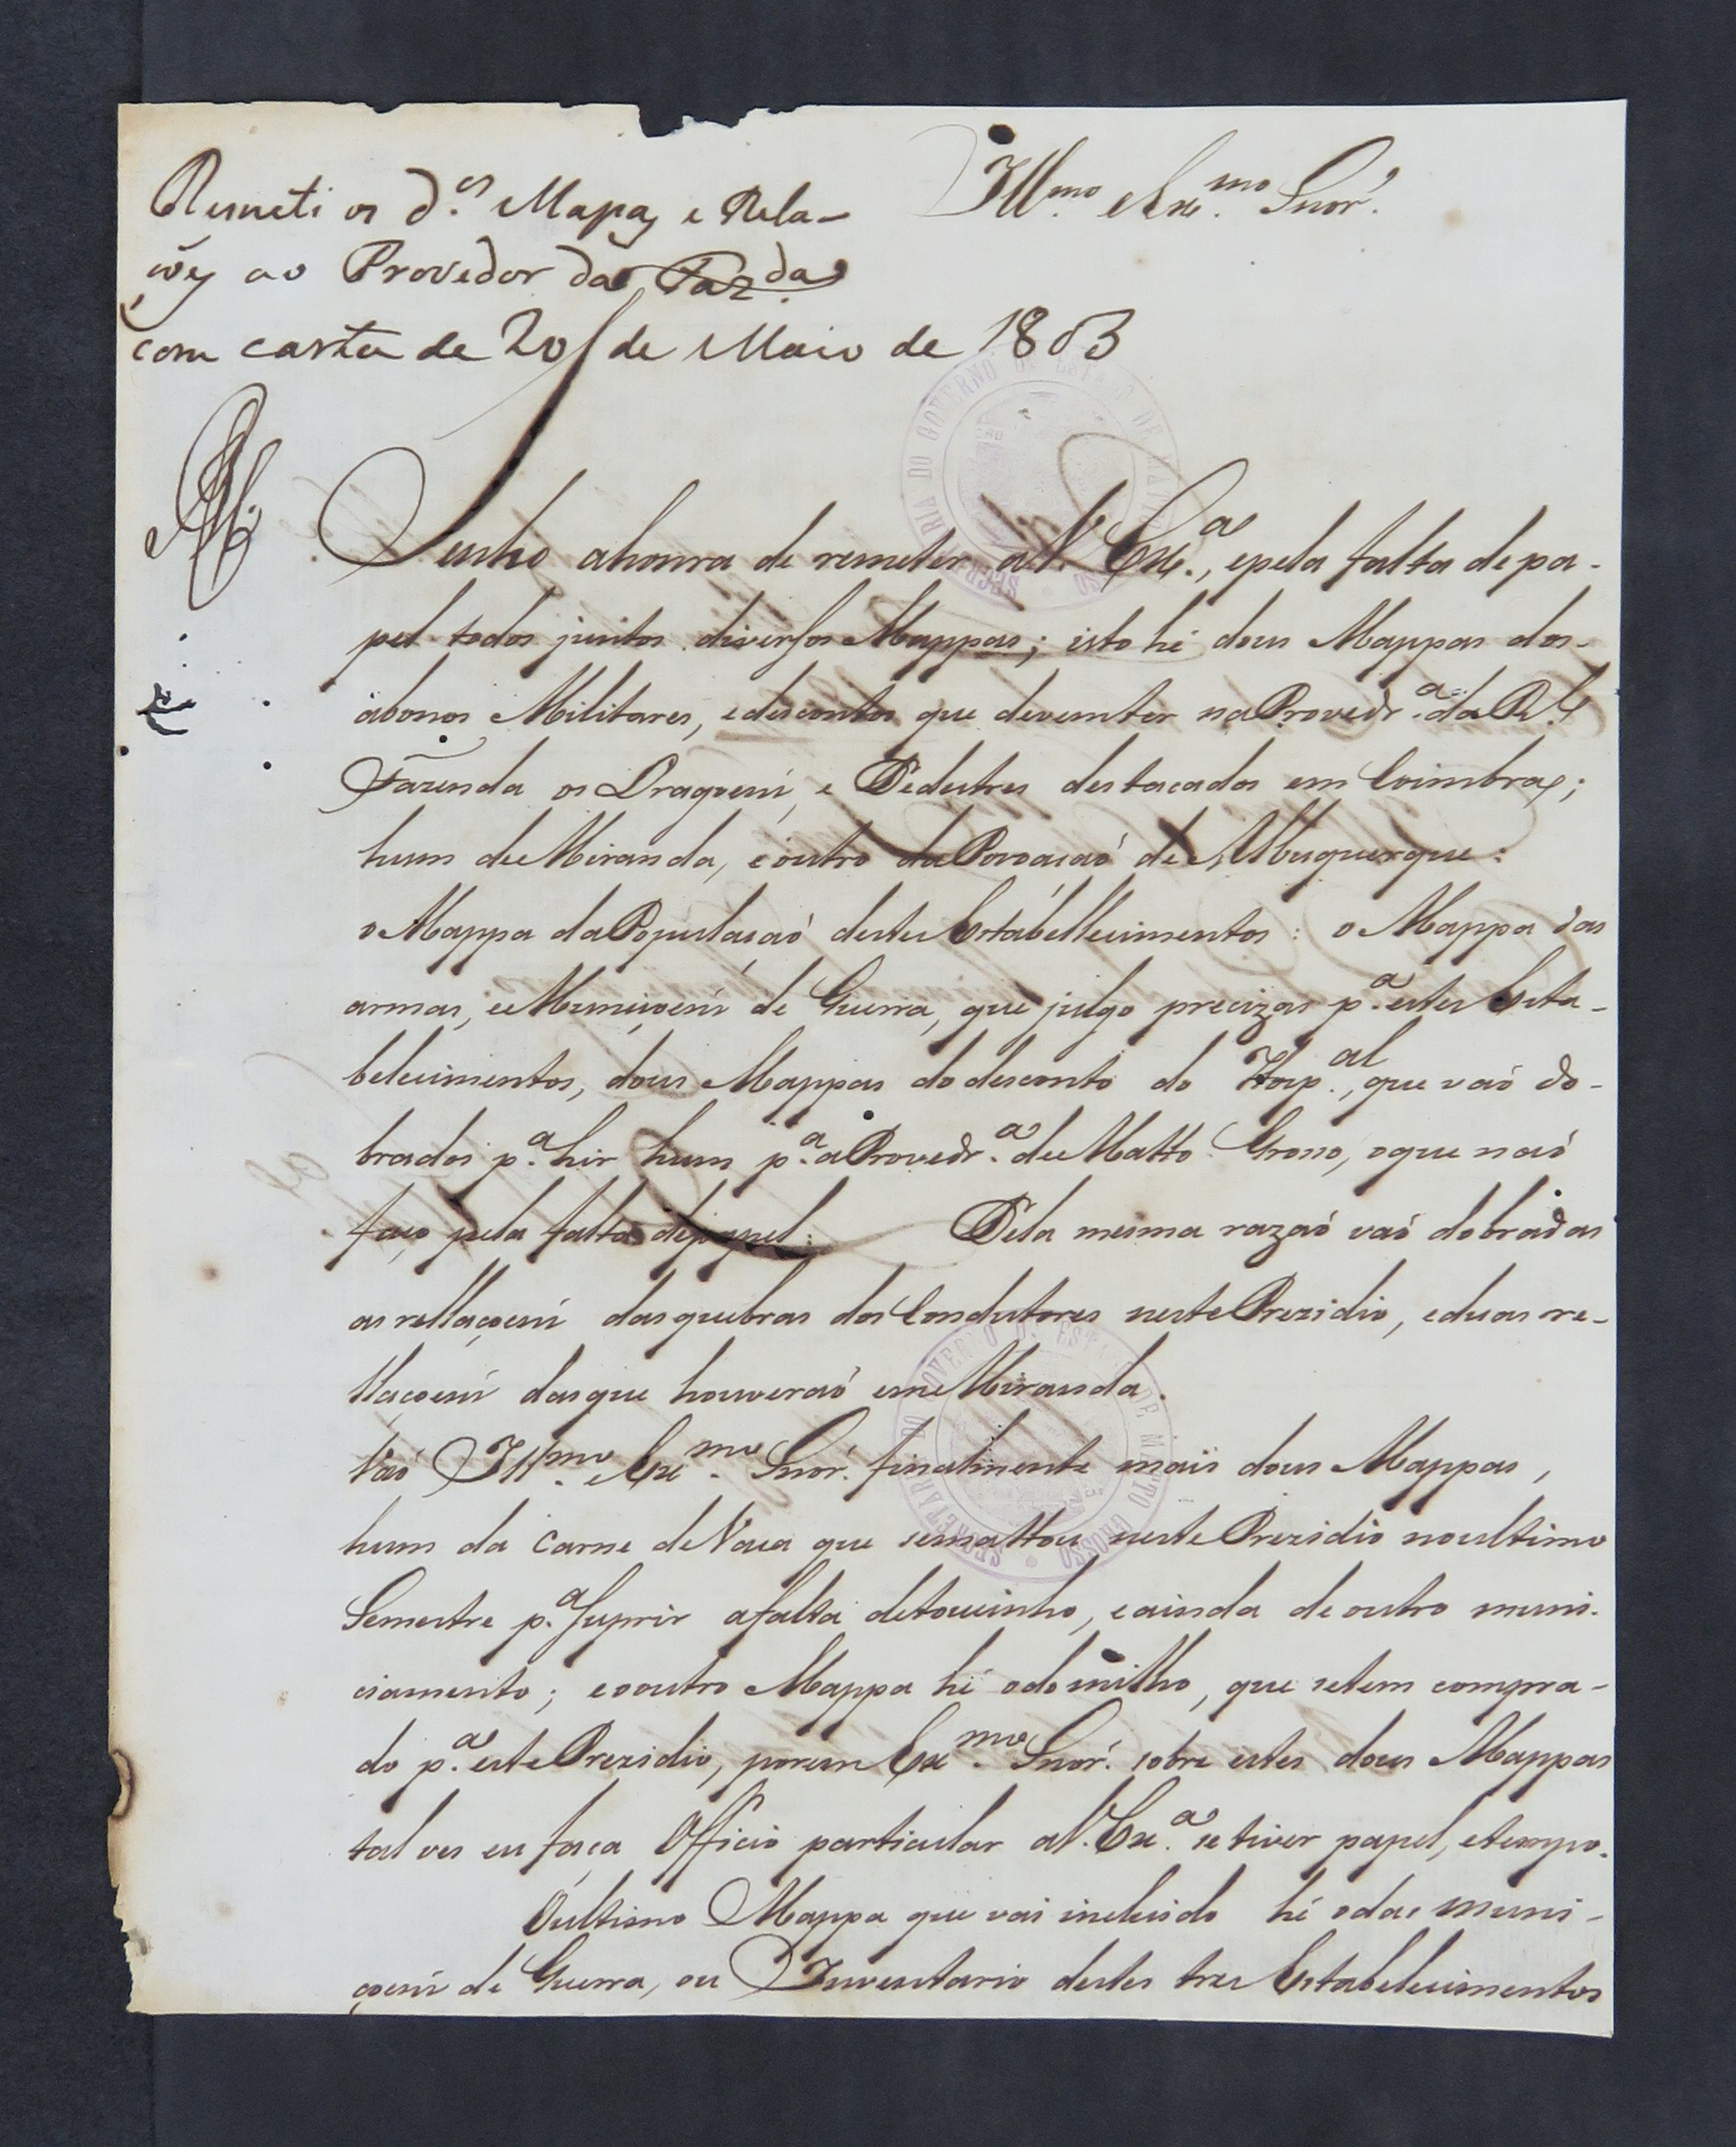 Remeti os d.os Mapas e Rela-
çoẽs ao Provedor da Fazda.
com carta de 20 de Maio de 1803
Illmo. e Exmo. Snõr.
Tenho ahonra de remeter a V. Exa., epela falta depa-
pel todos juntos diversos Mappas; isto hé dous Mappas dos
abonos Militares, edescontos que devemter naProvedra. daRl.
Fazenda os Dragoens, e Pedestres destacados em Coimbra;
hum deMiranda, eoutro daPovoacaó de Albuquerque:
oMappa daPopulasaó destes Estabellecimentos: o Mappa das
armas, eMuniçoens de Guerra, que julgo precizas pa. estes Esta-
belecimentos, dous Mappas dodesconto do Hosp.al, que vaó do-
brados pa. hir hum pa. aProvedra. deMatto Grosso, oque naó
faço pela falta depapel: Pela mesma razaó vaó dobradas
as rellaçoens dasquebras dos Condutores nestePrezidio, eduas re-
llaçoens dasque houveraó emMiranda.
Vaó Illmo. e Exmo. Snõr. finalmente mais dous Mappas,
hum da Carne deVaca que semattou nestePrezidio noultimo
Semestre pa. suprir afalta detoucinho, eainda de outro muni-
ciamento; eooutro Mappa hé odomilho, que setem compra-
do pa. estePrezidio, porem Exmo. Snõr. sobre estes dous Mappas
tal ves eu faça Officio particular aV. Exa. se tiver papel, etempo.
Oultimo Mappa que vai incluido hé odas muni-
çoens de Guerra, ou Inventario destes tres Estabelecimentos
SECRETARIA DO GOVERNO DO ESTADO DE MATTO GROSSO
SECRETARIA DO GOVERNO DO ESTADO DE MATTO GROSSO